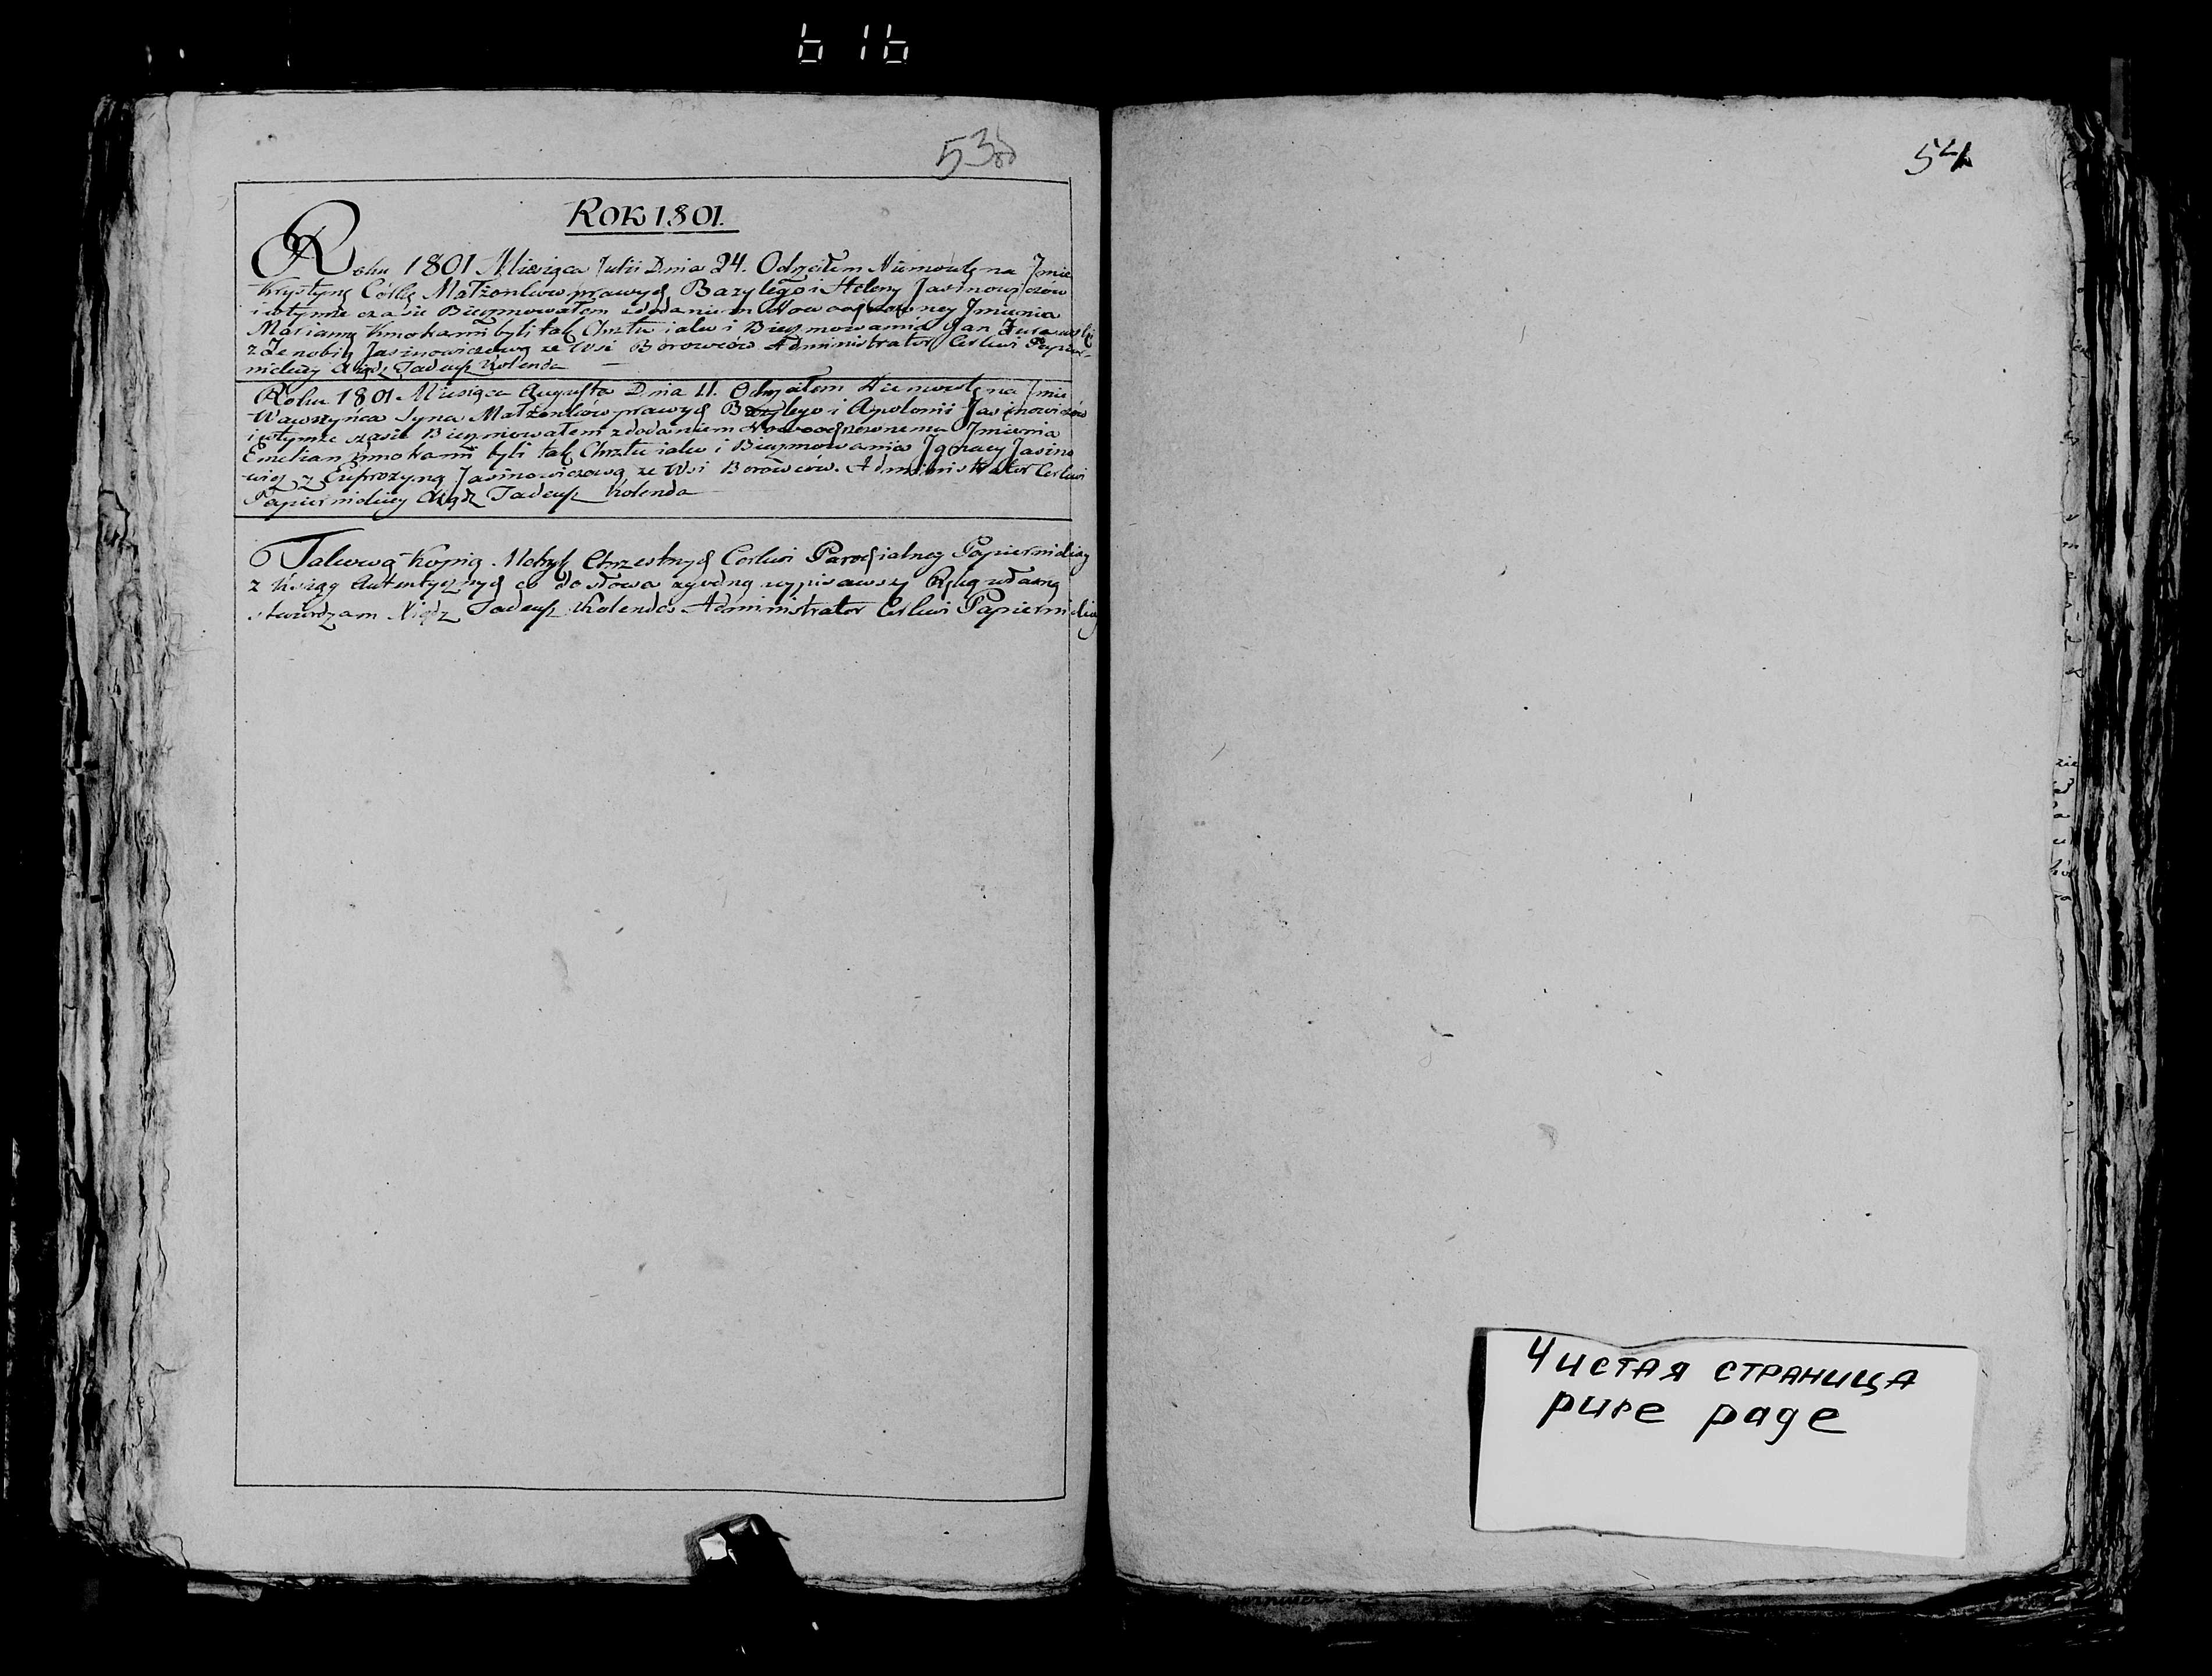 53
54
ROK 1801.
Roku 1801 Miesiąca Julii Dnia 24. Niemowlę na Jmie
Krystynę Córkę Małżonków prawych Bazylego i Heleny Jasinowiczów
i wtymże czasie Bierzmowałem zdodaniem Nowoochrzczoney Jmienia
Mariannę Kmotrami byli tak Chrztu iako i Bierzmowania Jan
z Zenobią Jasinowiczową ze Wsi Borowców Administrator Cerkwi Papier-
nickiey Xiądz Tadeusz Kolenda
Roku 1801 Miesiąca Augusta Dnia 11. Niemowlę na Jmie
Wawrzyńca Syna Małżonków prawych Bazylego i Apolonii Jasinowiczów
i wtymże czasie Bierzmowałem zdodaniem Jmienia
Emelian Kmotrami byli tak Chrztu iako i Bierzmowania Jgnacy Jasino
wicz z Eufrozyną Jasinowiczową ze Wsi Borowców. Administrator Cerkwi
Papiernickiey Xiądz Tadeusz Kolenda
Takową Kopią Metryk Chrzestnych Cerkwi Parochialney Papiernickiey
z Xsiąg Autentycznych co do słowa zgodną wypisawszy Ręką własną
stwierdzam Xiądz Tadeusz Kolenda Administrator Cerkwi Papiernickiey
Чистая страница
pure page